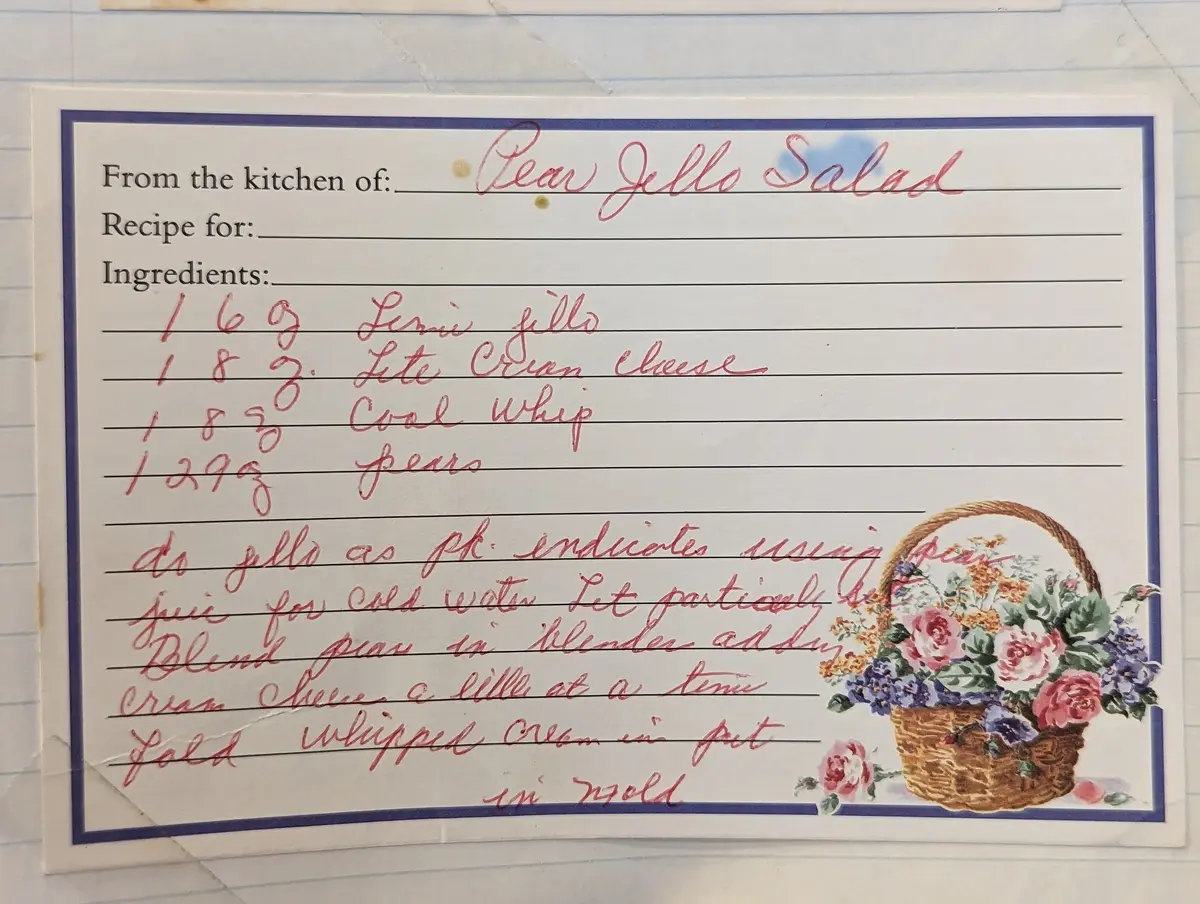 From the kitchen of: Pear Jello Salad
Recipe for:
Ingredients:
1 6 oz Lime jello
1 8 oz. Lite Cream cheese
1 8 oz Cool Whip
1 29 oz pears
do jello as pk. indicates using pear
juic for cold water Let partically set
Blend pears in blender adding
cream cheese a little at a time
Fold whipped cream in put
in mold